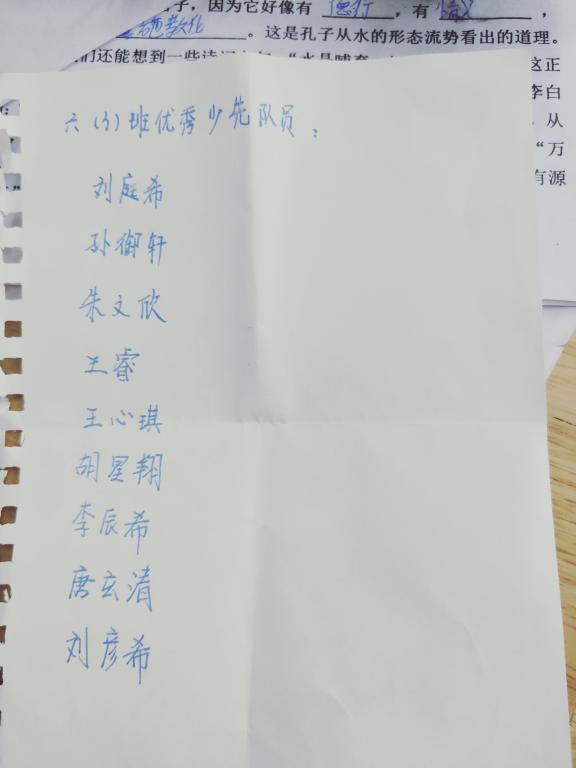 子,因为它好像有 德行 ,有 情义 ,
志也教化 。这是孔子从水的形态流势看出的道理。
们还能想到一些诗词
这正
李白
从
“万
有源
六(3)班优秀少先队员:
刘庭希
孙御轩
朱文欣
王睿
王心琪
胡星翔
李辰希
唐玄清
刘彦希